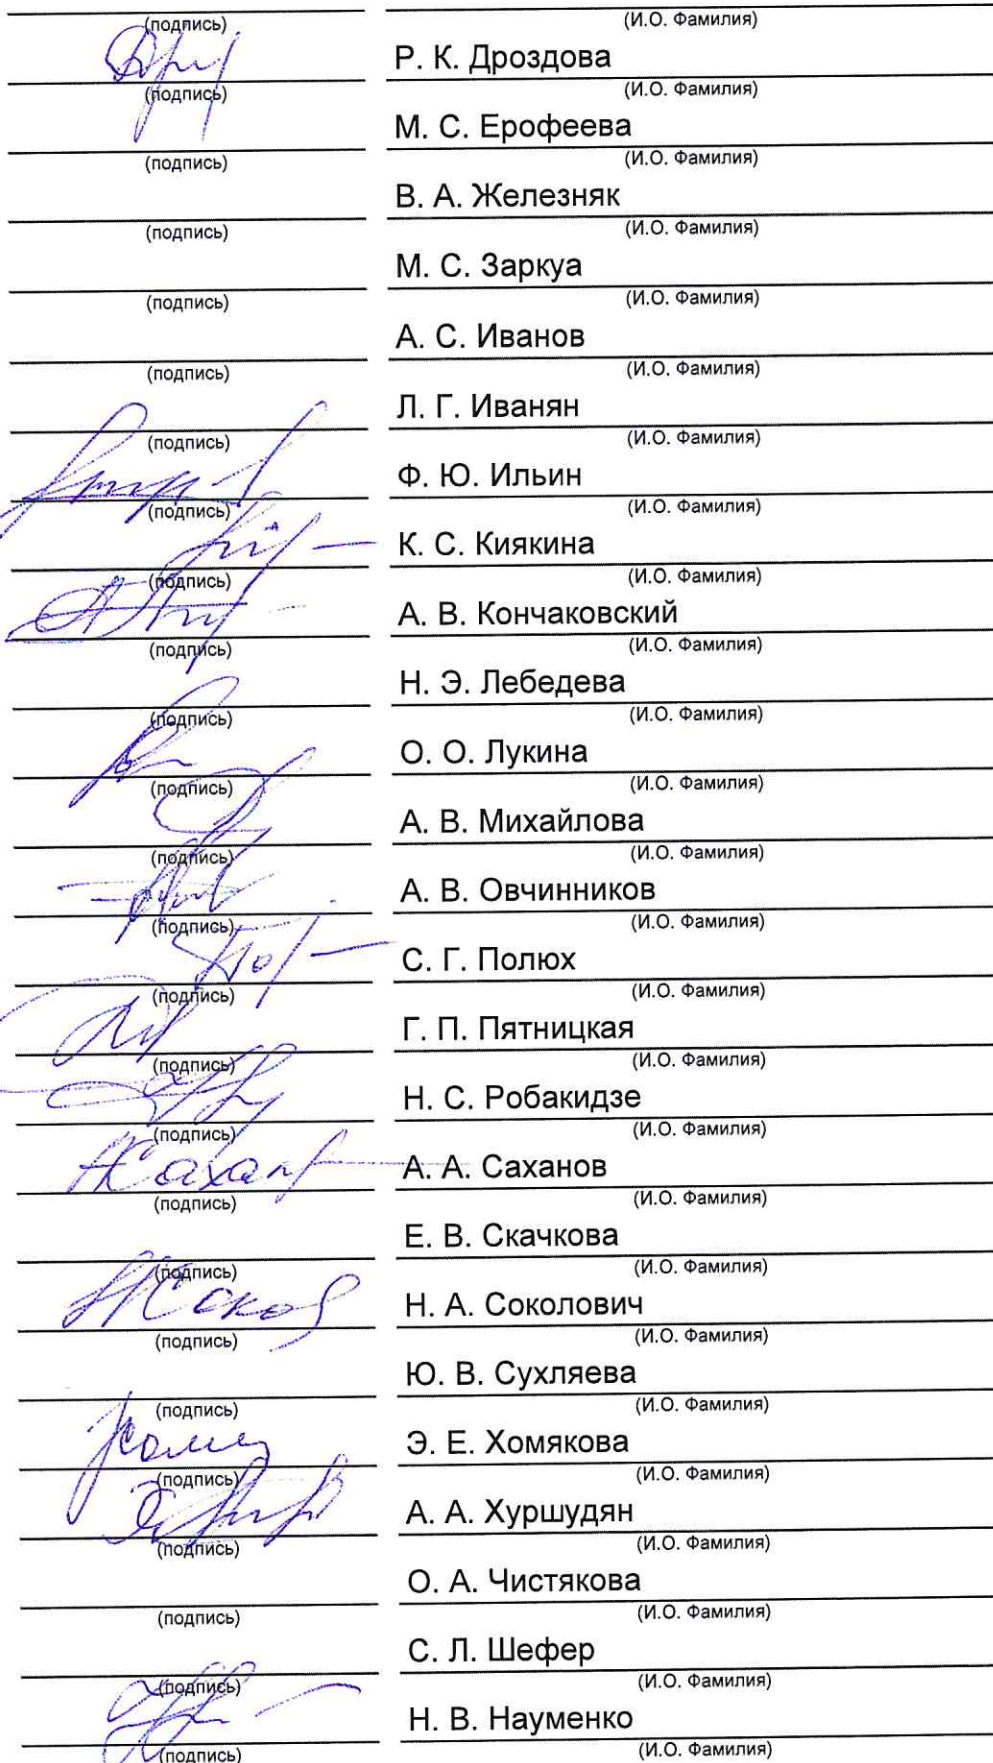 (подпись) (И.О. Фамилия)
Р. К. Дроздова
(подпись) (И.О. Фамилия)
М. С. Ерофеева
(подпись) (И.О. Фамилия)
В. А. Железняк
(подпись) (И.О. Фамилия)
М. С. Заркуа
(подпись) (И.О. Фамилия)
А. С. Иванов
(подпись) (И.О. Фамилия)
Л. Г. Иванян
(подпись) (И.О. Фамилия)
Ф. Ю. Ильин
(подпись) (И.О. Фамилия)
К. С. Киякина
(подпись) (И.О. Фамилия)
А. В. Кончаковский
(подпись) (И.О. Фамилия)
Н. Э. Лебедева
(подпись) (И.О. Фамилия)
О. О. Лукина
(подпись) (И.О. Фамилия)
А. В. Михайлова
(подпись) (И.О. Фамилия)
А. В. Овчинников
(подпись) (И.О. Фамилия)
С. Г. Полюх
(подпись) (И.О. Фамилия)
Г. П. Пятницкая
(подпись) (И.О. Фамилия)
Н. С. Робакидзе
(подпись) (И.О. Фамилия)
А. А. Саханов
(подпись) (И.О. Фамилия)
Е. В. Скачкова
(подпись) (И.О. Фамилия)
Н. А. Соколович
(подпись) (И.О. Фамилия)
Ю. В. Сухляева
(подпись) (И.О. Фамилия)
Э. Е. Хомякова
(подпись) (И.О. Фамилия)
А. А. Хуршудян
(подпись) (И.О. Фамилия)
О. А. Чистякова
(подпись) (И.О. Фамилия)
С. Л. Шефер
(подпись) (И.О. Фамилия)
Н. В. Науменко
(подпись) (И.О. Фамилия)